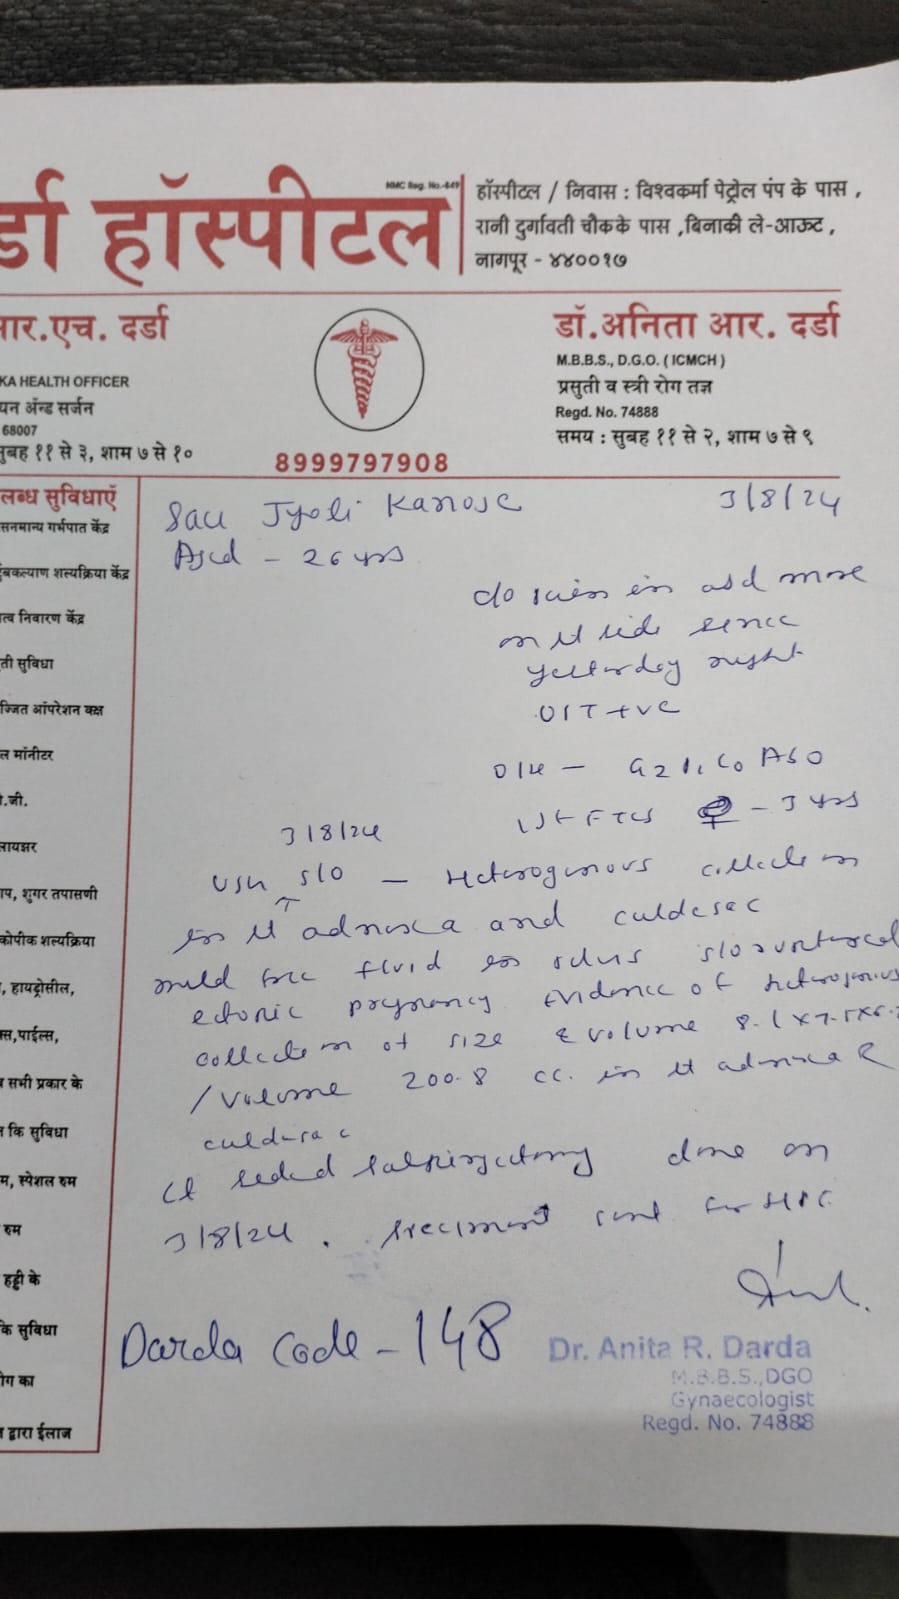 र्डा हॉस्पीटल
NMC Reg. No.-849
हॉस्पीटल / निवास : विश्वकर्मा पेट्रोल पंप के पास ,
रानी दुर्गावती चौकके पास ,बिनाकी ले-आऊट ,
नागपूर - ४४००१७
आर.एच. दर्डा
KA HEALTH OFFICER
यन ॲन्ड सर्जन
68007
सुबह ११ से ३, शाम ७ से १०
8999797908
डॉ.अनिता आर. दर्डा
M.B.B.S., D.G.O. ( ICMCH )
प्रसुती व स्त्री रोग तज्ञ
Regd. No. 74888
समय : सुबह ११ से २, शाम ७ से ९
लब्ध सुविधाएँ
सनमान्य गर्भपात केंद्र
कल्याण शल्यक्रिया केंद्र
त्व निवारण केंद्र
ती सुविधा
ज्जित ऑपरेशन कक्ष
ल मॉनीटर
.जी.
लायझर
ाप, शुगर तपासणी
कोपीक शल्यक्रिया
, हायद्रोसील,
स,पाईल्स,
सभी प्रकार के
कि सुविधा
म, स्पेशल रुम
रुम
हड्डी के
कि सुविधा
ोग का
द्वारा ईलाज
Sau Jyoti Kanoje 3/8/24
Aged - 26 yrs
c/o in abd more
on side since
yesterday night
UPT +ve
O/H - G2 P1 L0 A0
FTLS ♀ - 3 yrs
3/8/24
USG S/O - Heterogenous collection
in adnexa and culdesac
mild free fluid in pelvis S/O ruptured
ectopic pregnancy. Evidence of heterogenous
collection of size & volume 8.1 x 7.5 x
/ volume 200.8 cc. in adnexa &
culdesac
sided salpingectomy done on
3/8/24 . Specimen sent for HPE
Darda Code - 148
Dr. Anita R. Darda
M.B.B.S.,DGO
Gynaecologist
Regd. No. 74888